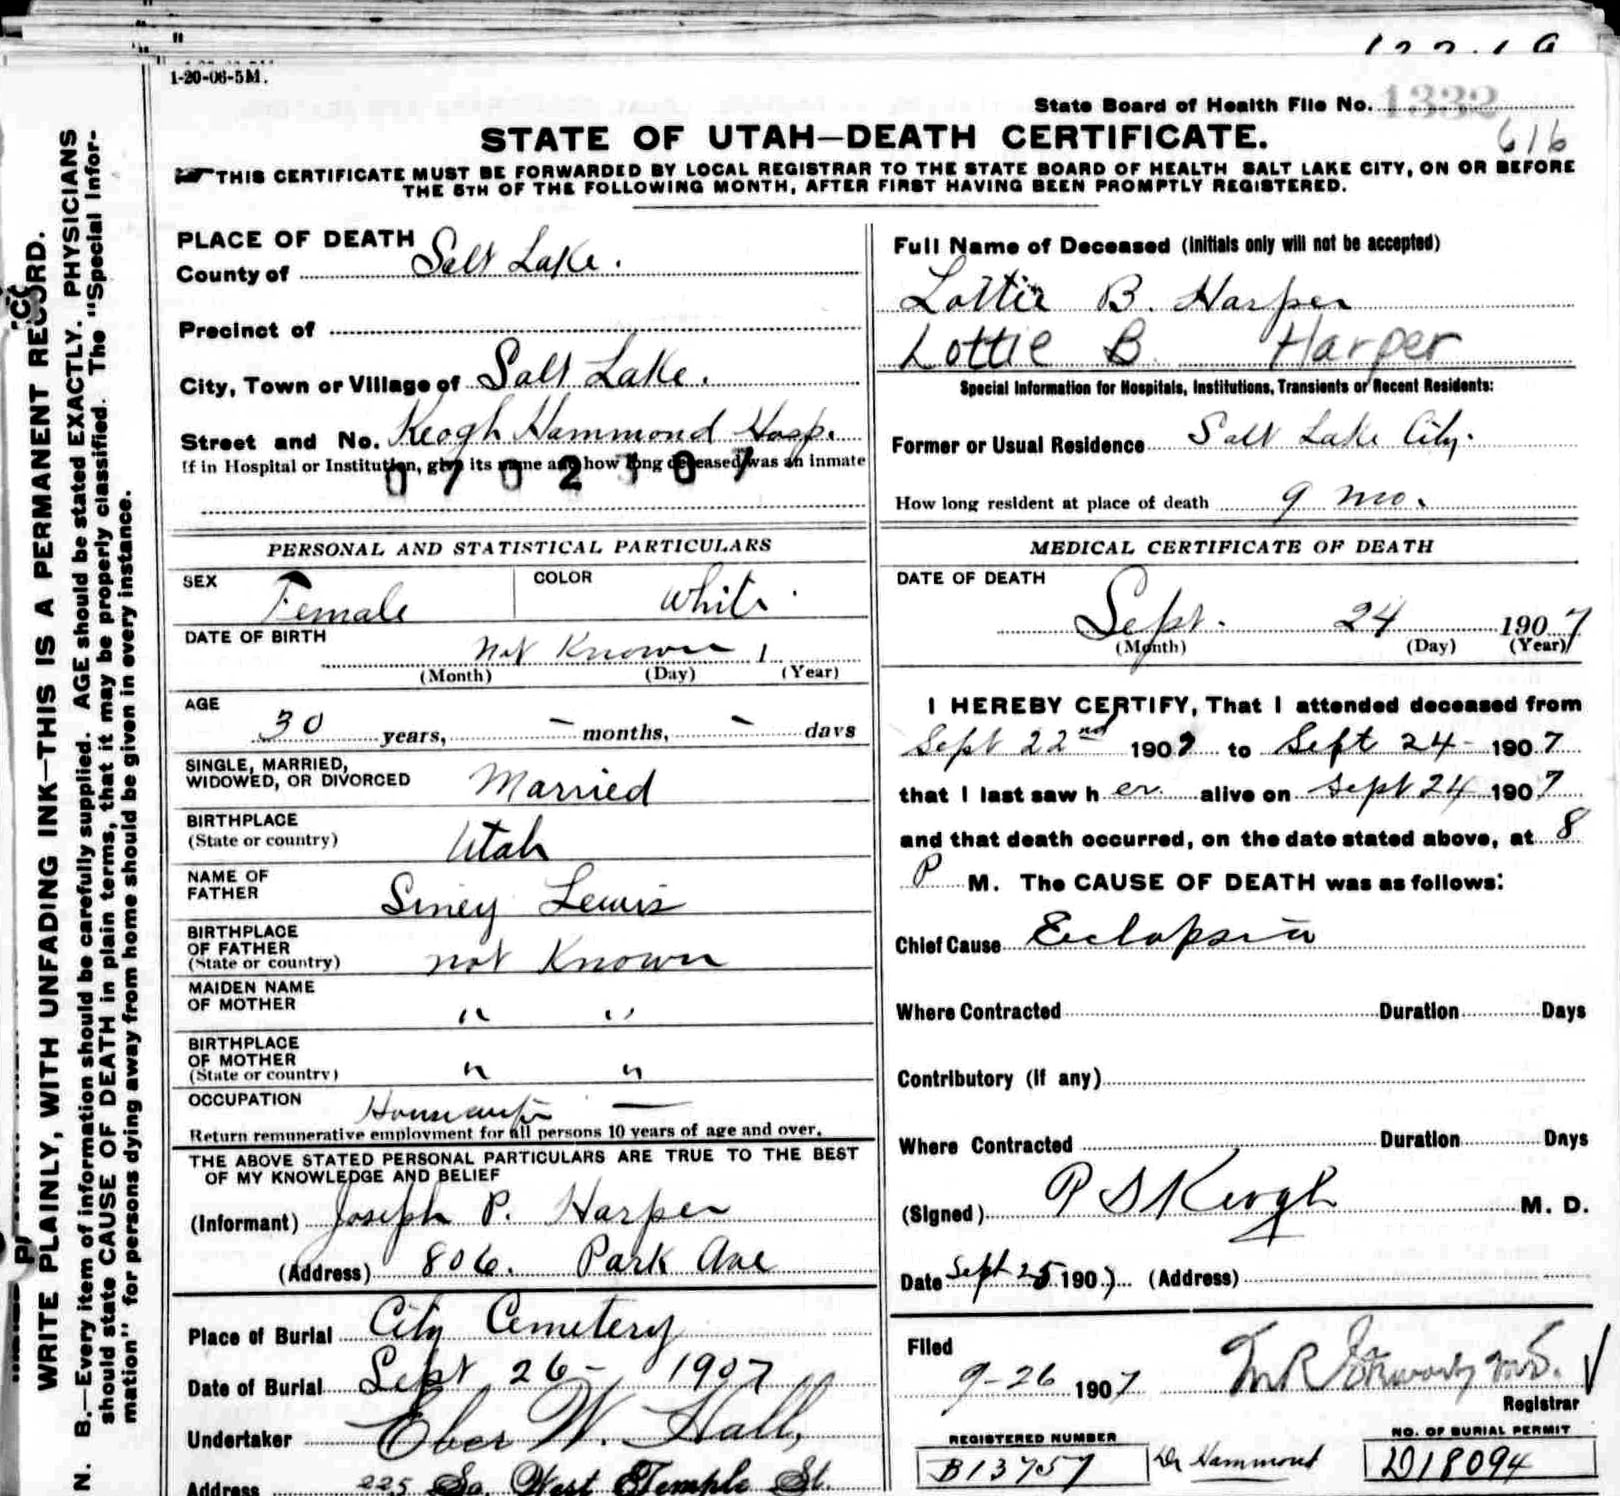 1-20-06-5M.
State Board of Health File No. 1332
616
STATE OF UTAH—DEATH CERTIFICATE.
THIS CERTIFICATE MUST BE FORWARDED BY LOCAL REGISTRAR TO THE STATE BOARD OF HEALTH SALT LAKE CITY, ON OR BEFORE
THE 5TH OF THE FOLLOWING MONTH, AFTER FIRST HAVING BEEN PROMPTLY REGISTERED.
WRITE PLAINLY, WITH UNFADING INK—THIS IS A PERMANENT RECORD.
N. B.—Every item of information should be carefully supplied. AGE should be stated EXACTLY. PHYSICIANS
should state CAUSE OF DEATH in plain terms, that it may be properly classified. The "Special Infor-
mation" for persons dying away from home should be given in every instance.
PLACE OF DEATH
County of Salt Lake.
Precinct of
City, Town or Village of Salt Lake.
Street and No. Keogh Hammond Hosp.
If in Hospital or Institution, give its name and how long deceased was an inmate
PERSONAL AND STATISTICAL PARTICULARS
SEX Female COLOR White
DATE OF BIRTH not Known 1
(Month) (Day) (Year)
AGE
30 years, – months, – days
SINGLE, MARRIED,
WIDOWED, OR DIVORCED Married
BIRTHPLACE
(State or country) Utah
NAME OF
FATHER Siney Lewis
BIRTHPLACE
OF FATHER
(State or country) not Known
MAIDEN NAME
OF MOTHER " "
BIRTHPLACE
OF MOTHER
(State or country) " "
OCCUPATION Housewife —
Return remunerative employment for all persons 10 years of age and over.
THE ABOVE STATED PERSONAL PARTICULARS ARE TRUE TO THE BEST
OF MY KNOWLEDGE AND BELIEF
(Informant) Joseph P. Harper
(Address) 806. Park Ave
Place of Burial City Cemetery
Date of Burial Sept 26 – 1907
Undertaker Eber W. Hall,
Address 225 So. West Temple St.
Full Name of Deceased (Initials only will not be accepted)
Lottie B. Harper
Lottie B Harper
Special Information for Hospitals, Institutions, Transients or Recent Residents:
Former or Usual Residence Salt Lake City.
How long resident at place of death 9 mo.
MEDICAL CERTIFICATE OF DEATH
DATE OF DEATH
Sept. 24 1907
(Month) (Day) (Year)
I HEREBY CERTIFY, That I attended deceased from
Sept 22nd 1907 to Sept 24 - 1907
that I last saw her alive on Sept 24 1907
and that death occurred, on the date stated above, at 8
P M. The CAUSE OF DEATH was as follows:
Chief Cause Eclapsia
Where Contracted Duration Days
Contributory (If any)
Where Contracted Duration Days
(Signed) P S Keogh M. D.
Date Sept 25 1907 (Address)
Filed
9-26 1907
Registrar
REGISTERED NUMBER
B13757
Dr Hammond
NO. OF BURIAL PERMIT
D18094